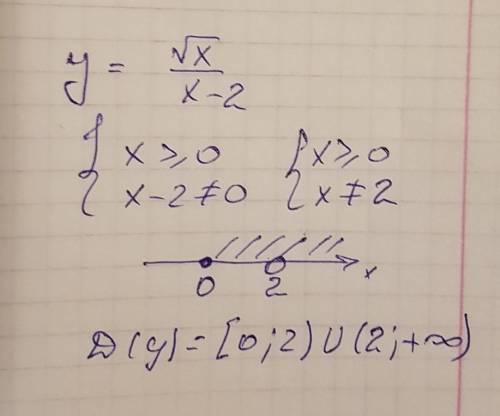 y = √x / x-2
{ x ≥ 0 { x ≥ 0
{ x-2 ≠ 0 { x ≠ 2
0 2 x
D(y) = [0;2) U (2;+∞)